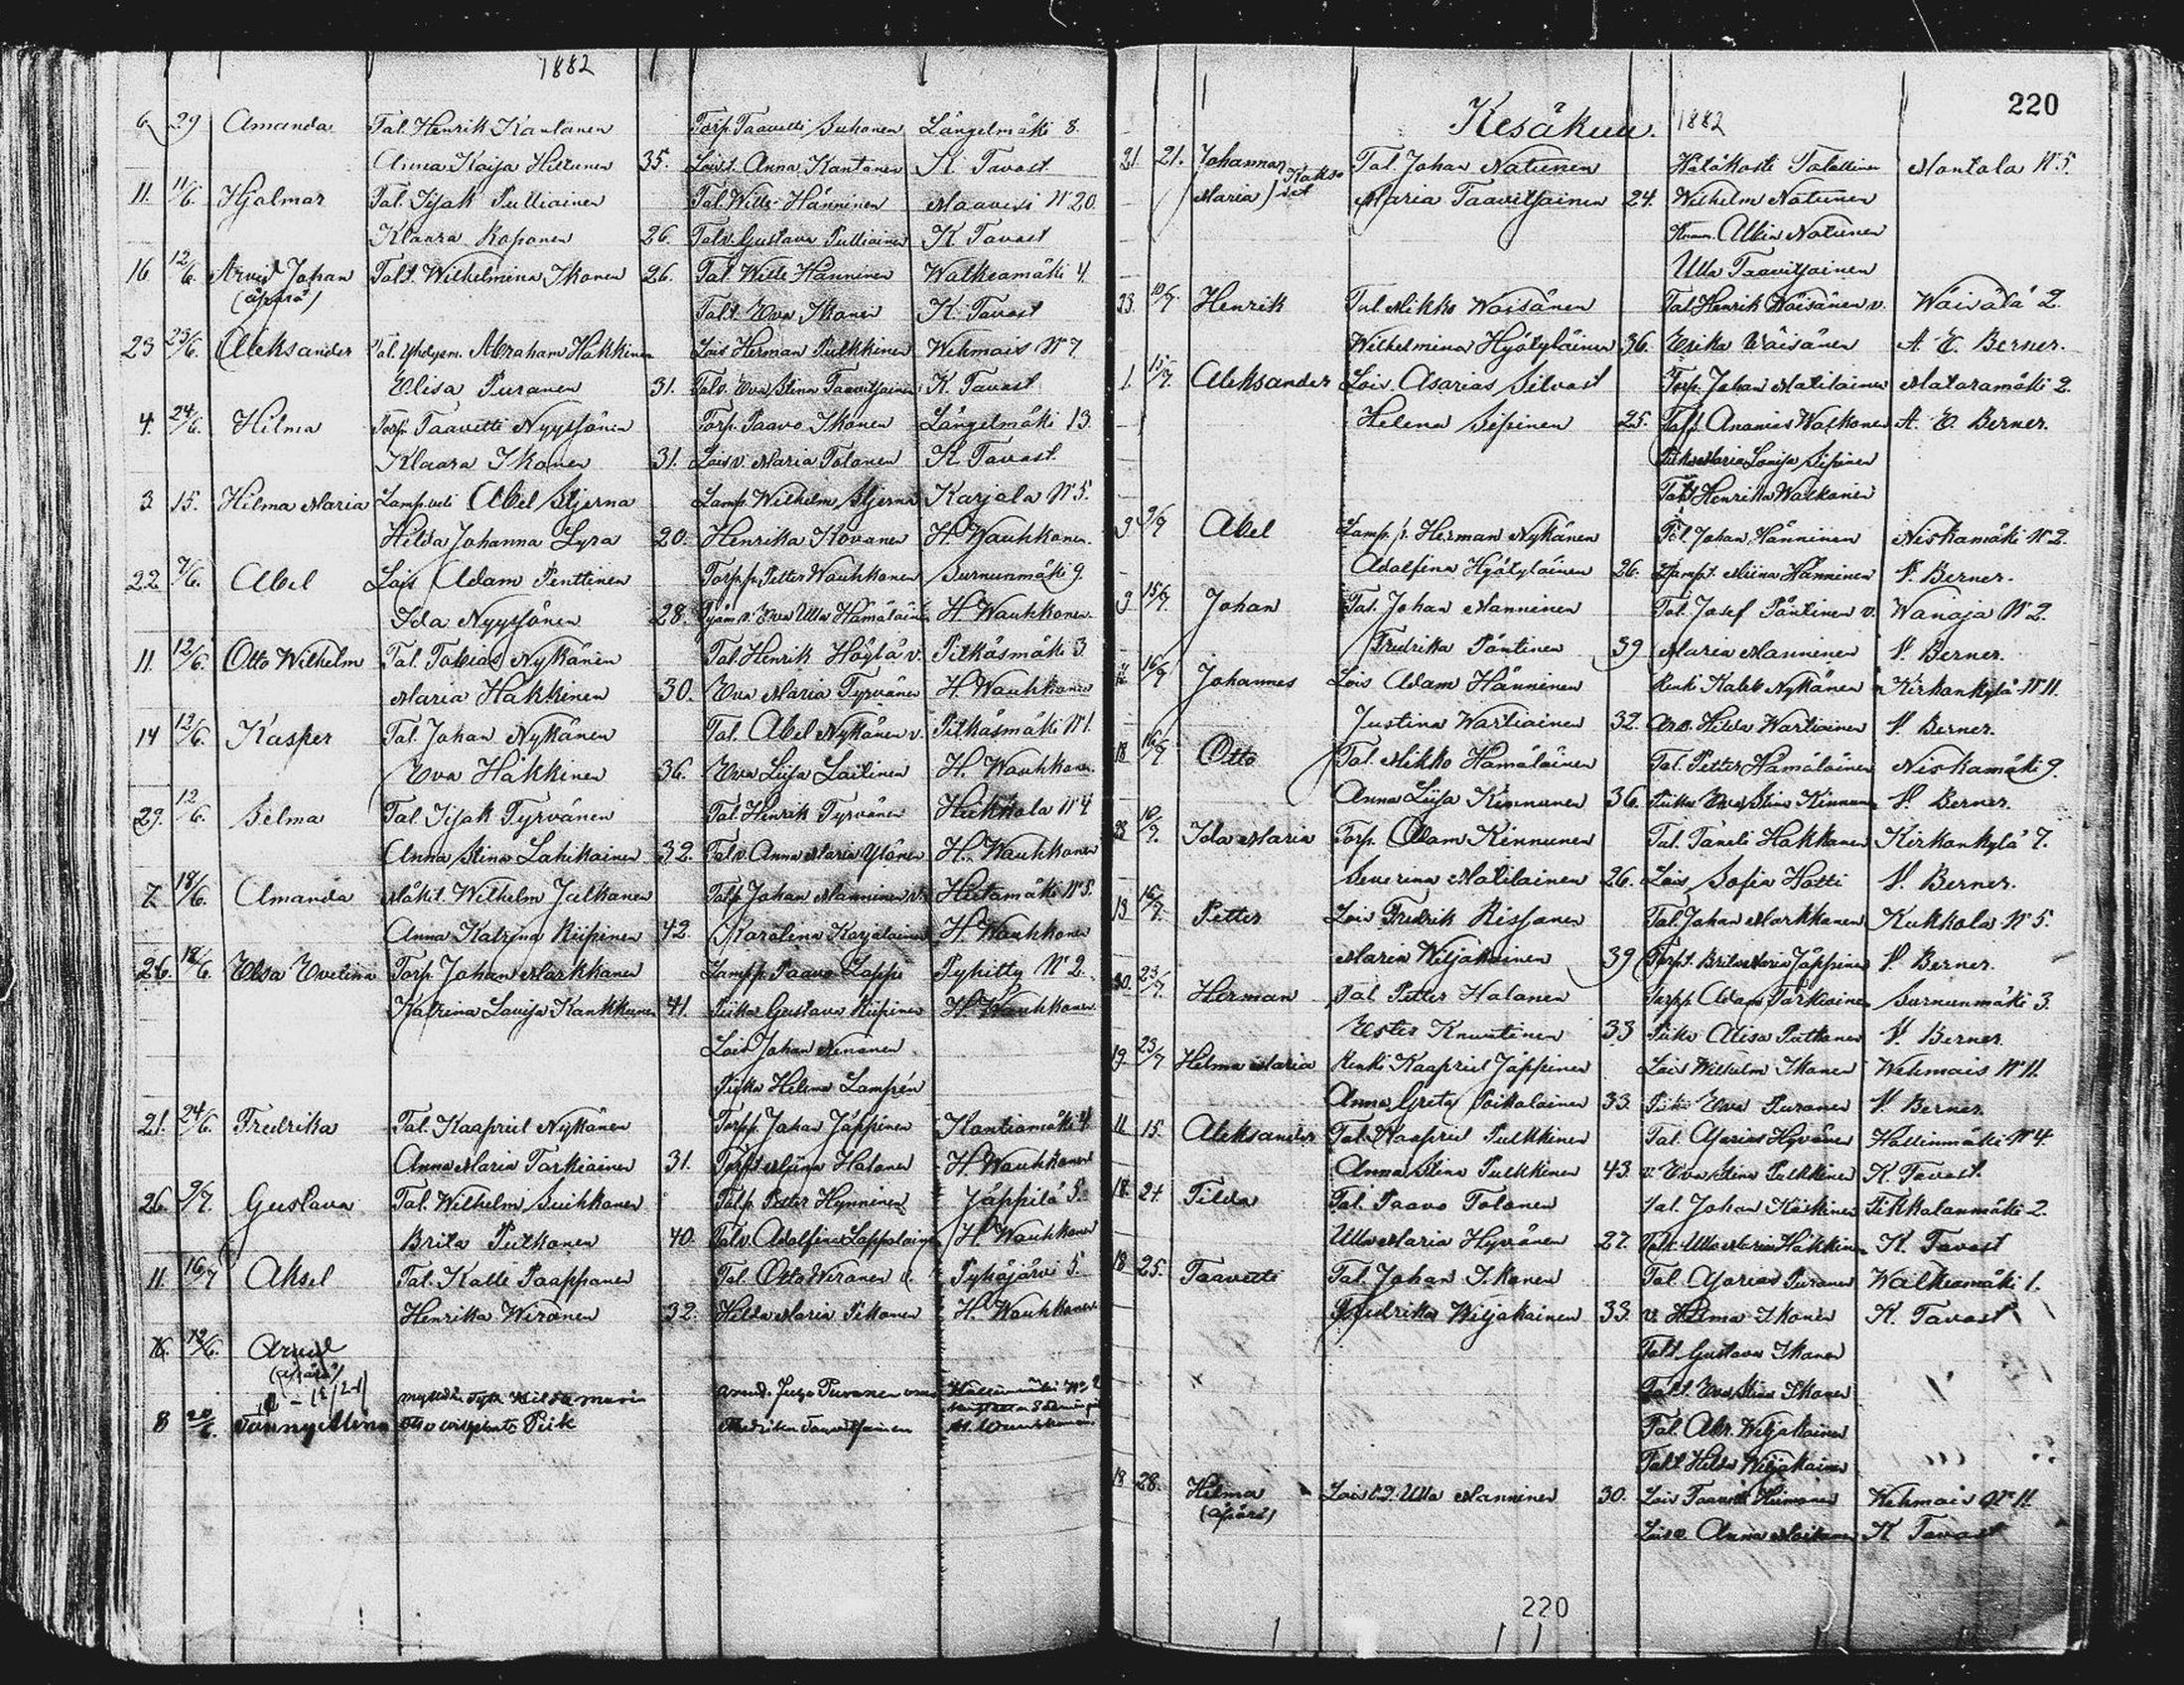 1882
6 29 Amanda Tal. Henrik Kautanen Torp. Taavetti Suhonen Längelmäki 8.
Anna Kaisa Hiltunen 35. Loist. Anna Kautanen K. Tavast
11. 11/6. Hjalmar Tal. Iisak Pulliainen Tal. Wille Hänninen Maavesi N:20.
Klaara Koponen 26. Talv. Gustava Pulliainen K. Tavast
16 12/6. Arvid Johan Talt. Wilhelmina Ikonen 26. Tal. Wille Hänninen Walkeamäki 4.
(äpärä) Talt. Eva Ikonen K. Tavast
23 23/6. Aleksander Tal. Abraham Häkkinen Lois Herman Pulkkinen Wehmais N:7.
Elisa Puranen 31. Talv. Eva Stina Taavitsainen K. Tavast
4. 24/6. Hilma Torp. Taavetti Nyyssönen Torp. Paavo Ikonen Längelmäki 13.
Klaara Ikonen 31. Loisv. Maria Tolonen K. Tavast.
3 15. Hilma Maria Lamp.veli Abel Stjerna Lamp. Wilhelm Stjerna Karjala N:5.
Hilda Johanna Lyra 20. Henrika Ilovanen H. Wauhkonen.
22 7/6. Abel Lois Adam Penttinen Torp.p. Petter Wauhkonen Surnunmäki 9.
Ida Nyyssönen 28. Eva Ulla Hämäläinen H. Wauhkonen.
11. 12/6. Otto Wilhelm Tal. Tobias Nykänen Tal. Henrik Höglä v. Pitkäsmäki 3
Maria Häkkinen 30. Eva Maria Tyrvänen H. Wauhkonen
14 12/6. Kasper Tal. Johan Nykänen Tal. Abel Nykänen v. Pitkäsmäki N:1.
Eva Häkkinen 36. Eva Liisa Laitinen H. Wauhkonen.
29. 12/6. Selma Tal. Iisak Tyrvänen Tal. Henrik Tyrvänen Heikkola N:4
Anna Stina Lahikainen 32. Talv. Anna Maria Ylönen H. Wauhkonen
7. 18/6. Amanda Mäkit. Wilhelm Jalkanen Talp. Johan Manninen v. Heitamäki N:8.
Anna Katrina Riipinen 42. Karolina Karjalainen H. Wauhkonen
26. 18/6. Elsa Evelina Torp. Johan Markkanen Lampp. Paavo Lappi Pyhitty N:2.
Katrina Lovisa Kankkunen 41. Piika Gustava Riipinen H. Wauhkonen
Lois Johan Nenonen
Piika Helena Lampén
21. 24/6. Fredrika Tal. Kaapriel Nykänen Torpp. Johan Jäppinen Kontiomäki 4
Anna Maria Tarkiainen 31. Miina Halonen H. Wauhkonen
26. 9/7. Gustava Tal. Wilhelm Suihkonen Talp. Petter Hynninen Jäppilä 5.
Brita Putkonen 40. Talv. Adolfina Lappalainen H. Wauhkonen
11. 16/7 Aksel Tal. Kalle Paappanen Tal. Otto Wiranen v. Pyhäjärvi 5.
Henrika Wiranen 32. Hilda Maria Pekonen H. Wauhkonen.
16. 12/6. Arvid
(äpärä)
Hilda Maria
8 Otto Piik Fredrika Taavitsainen
220
Kesäkuu. 1882
21. 21. Johannan Tal. Johan Natunen Hätäkaste Talollinen Montola N:5.
Maria) Kaksoiset Maria Taavitsainen 24. Wilhelm Natunen
Albin Natunen
Ulla Taavitsainen
23. 10/7. Henrik Tal. Mikko Wäisänen Tal. Henrik Wäisänen v. Wäisälä 2.
Wilhelmina Hyötyläinen 36. Erika Wäisänen A. E. Berner.
1. 15/7. Aleksander Lois. Asarias Silvast Torp. Johan Matilainen Mataramäki 2.
Helena Sipinen 25. Ananias Waskonen A. E. Berner.
Piika Maria Lovisa Sipinen
Henrika Waskonen
3 9/7 Abel Lamp.p. Herman Nykänen Tal. Johan Hänninen Niskamäki N:2.
Adolfina Hyötyläinen 26. Lampt. Miina Hänninen V. Berner.
9. 15/7. Johan Tal. Johan Manninen Tal. Josef Pöntinen v. Wanaja N:2.
Fredrika Pöntinen 39 Maria Manninen V. Berner.
16/7 Johannes Lois Adam Hänninen Renki Kaleb Nykänen Kirkonkylä N:11.
Justina Wartiainen 32. Hilda Wartiainen V. Berner.
18 16/7. Otto Tal. Mikko Hämäläinen Tal. Petter Hämäläinen Niskamäki 9.
Anna Liisa Kinnunen 36. Piika Eva Stina Kinnunen V. Berner.
23 16/7. Ida Maria Torp. Adam Kinnunen Tal. Taneli Hakkanen Kirkonkylä 7.
Severina Matilainen 26. Lois Sofia Hotti V. Berner.
13. 16/7. Petter Lois Fredrik Rissanen Tal. Johan Markkanen Kukkola N:5.
Maria Wiljakainen 39. Torpt. Brita Maria Jäppinen V. Berner.
30. 23/7. Herman Tal Petter Halonen Torpp. Adam Tarkiainen Surnunmäki 3.
Ester Knuutinen 33 Piika Alisa Putkonen V. Berner.
19. 23/7 Helma Maria Renki Kaapriel Jäppinen Lois Wilhelm Ikonen Wehmais N:11.
Anna Greta Poikolainen 33. Piik. Eva Puranen V. Berner.
11 15. Aleksander Tal. Kaapriel Pulkkinen Tal. Asarias Hyvönen Hallinmäki N:4.
Anna Stina Pulkkinen 43. v. Eva Stina Pulkkinen K. Tavast.
18. 21. Tilda Tal. Paavo Tolonen Tal. Johan Häkkinen Tikkalanmäki 2.
Ulla Maria Hyvönen 27. Ulla Maria Häkkinen K. Tavast
18 25. Taavetti Tal. Johan Ikonen Tal. Asarias Puranen Walkeamäki 1.
Fredrika Wiljakainen 33. v. Helma Ikonen K. Tavast
Talt. Gustava Ikonen
Talt. Eva Stina Ikonen
Tal. Abr. Wiljakainen
Talt. Hilda Wiljakainen
18 28. Hilma Ulla Manninen 30. Lois Taavetti Wehmais N:11.
(äpärä) Loisv. Anna K. Tavast
220